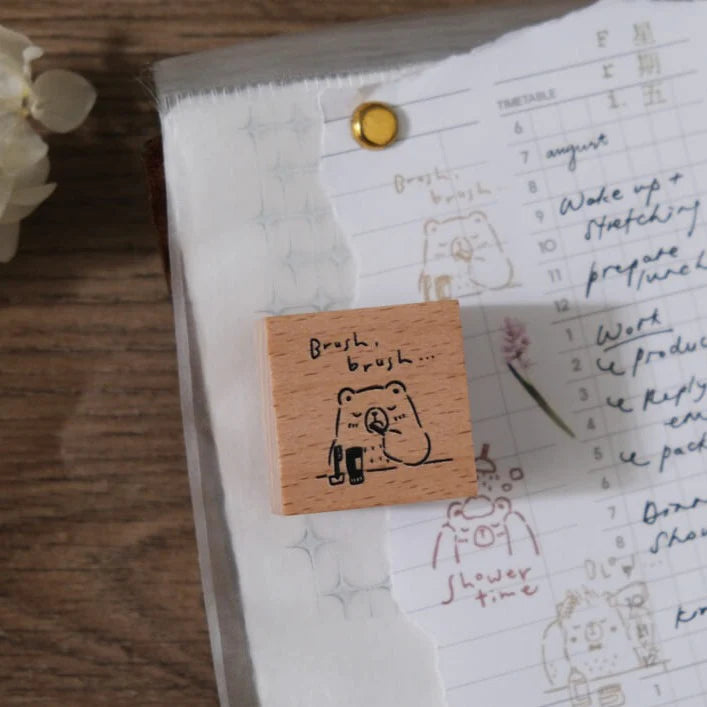 F 星
r 期
i. 五
TIMETABLE
6
7 august
8
9 Wake up +
stretching
10
11 prepare
lunch
12
1 Work
2 produc
3 Reply
4 em
5 pack
6
7 Dinn
8 Show
Brush,
brush...
Brush,
brush...
Shower
time
10
11
12
1